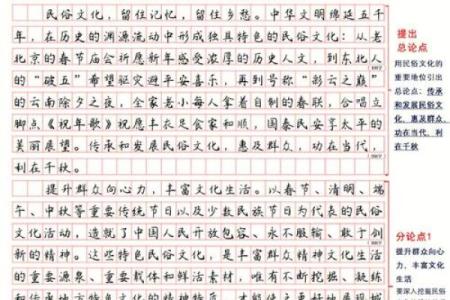 民俗文化，留住记忆，留住乡愁。中华文明绵延五千
年，在历史的渊源流动中形成独具特色的民俗文化：从老
北京的春节庙会祈愿新年感受浓厚的历史人文，到东北人
的“破五”希望驱灾避平安喜乐，再到号称“彩云之巅”
的云南除夕之夜，全家老小每人拿着自制的春联，合唱立
脚点《祝年歌》祝愿丰衣足食家和顺，国泰民安享太平的
美丽展望。传承和发展民俗文化，惠及群众，功在当代，
利在千秋。
提升群众向心力，丰富文化生活。以春节、清明、端
午、中秋等重要传统节日以及少数民族节日为代表的民俗
文化活动，造就了中国人民开放包容、永不服输、敢于创
新的精神。这些特色民俗文化，是丰富群众精神文化生活
的重要源泉、重要载体和鲜活素材，唯有不断挖掘、凝练
提出
总论点
用民俗文化的
重要地位引出
总论点：传承
和发展民俗文
化，惠及群众，
功在当代，利
在千秋
分论点1
提升群众向心
力，丰富文化
生活
要深入挖掘民俗